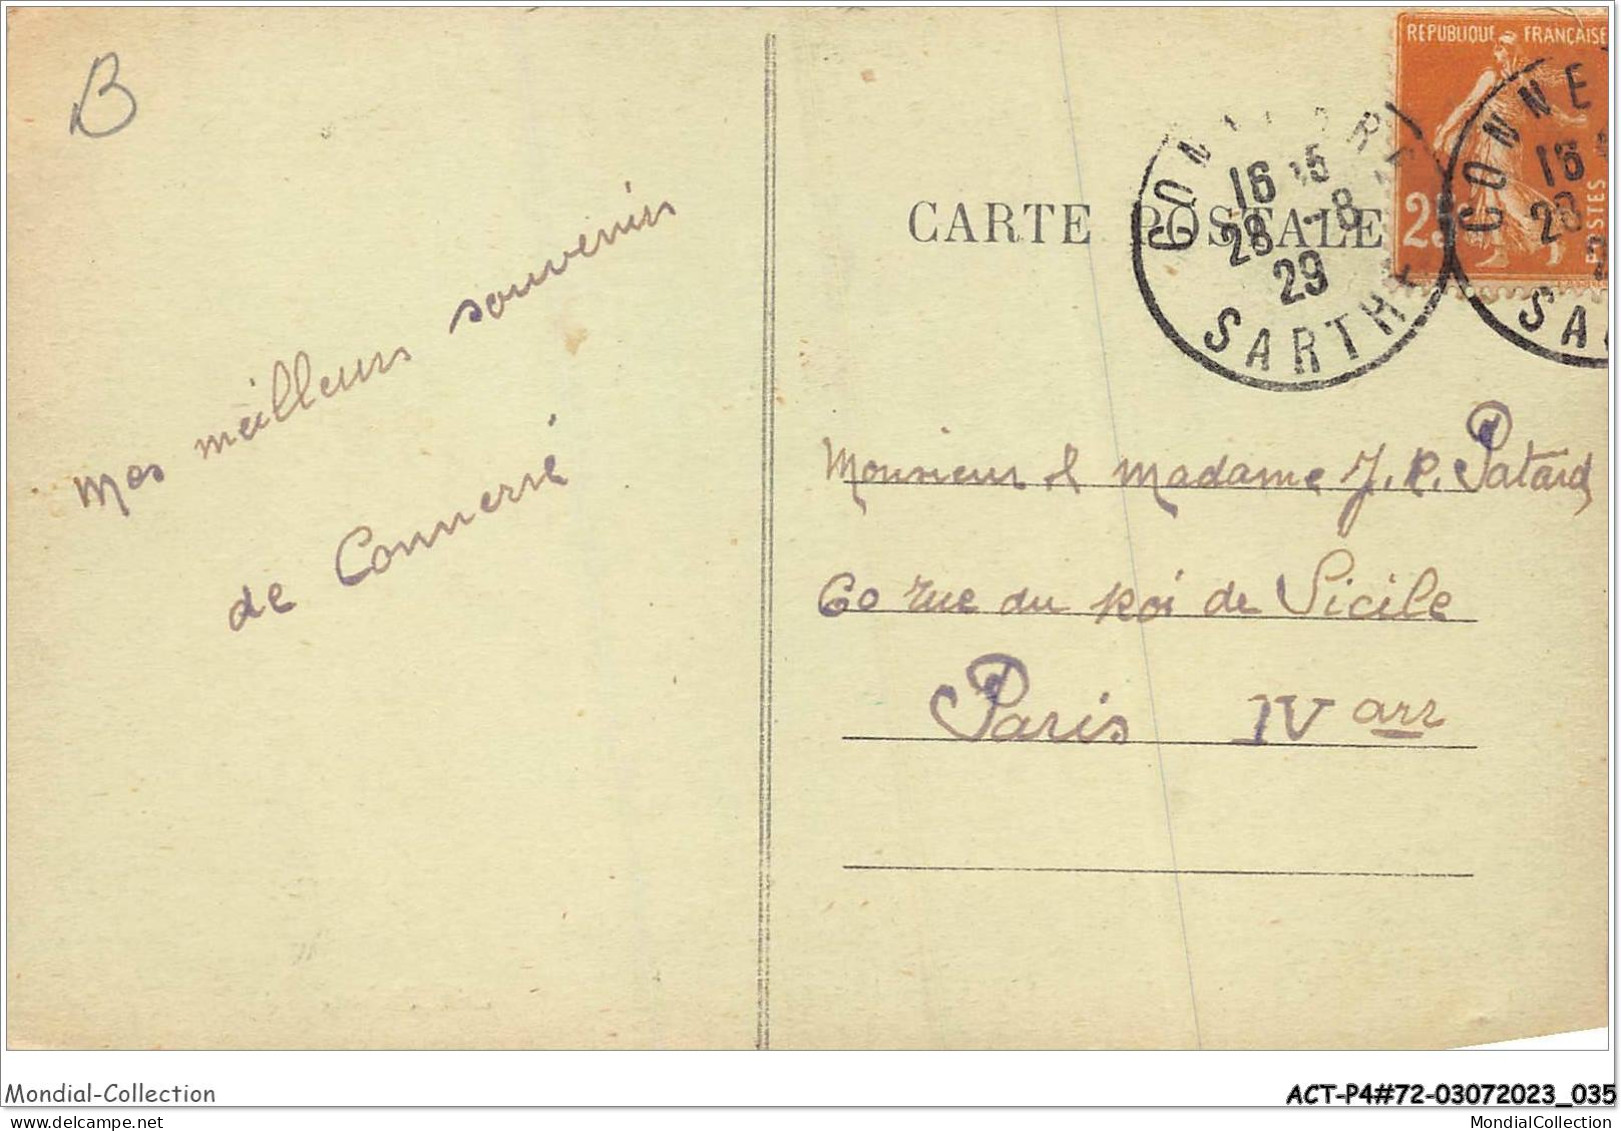 B
Mes meilleurs souvenirs
de Connerré
CARTE POSTALE
REPUBLIQUE FRANÇAISE
POSTES
CONNERRE
16 15
28 -8
29
SARTHE
CONNE
16
28
2
SA
Monsieur & Madame J. R. Patard
60 rue du Roi de Sicile
Paris IV arr
Mondial-Collection
ACT-P4#72-03072023_035
MondialCollection